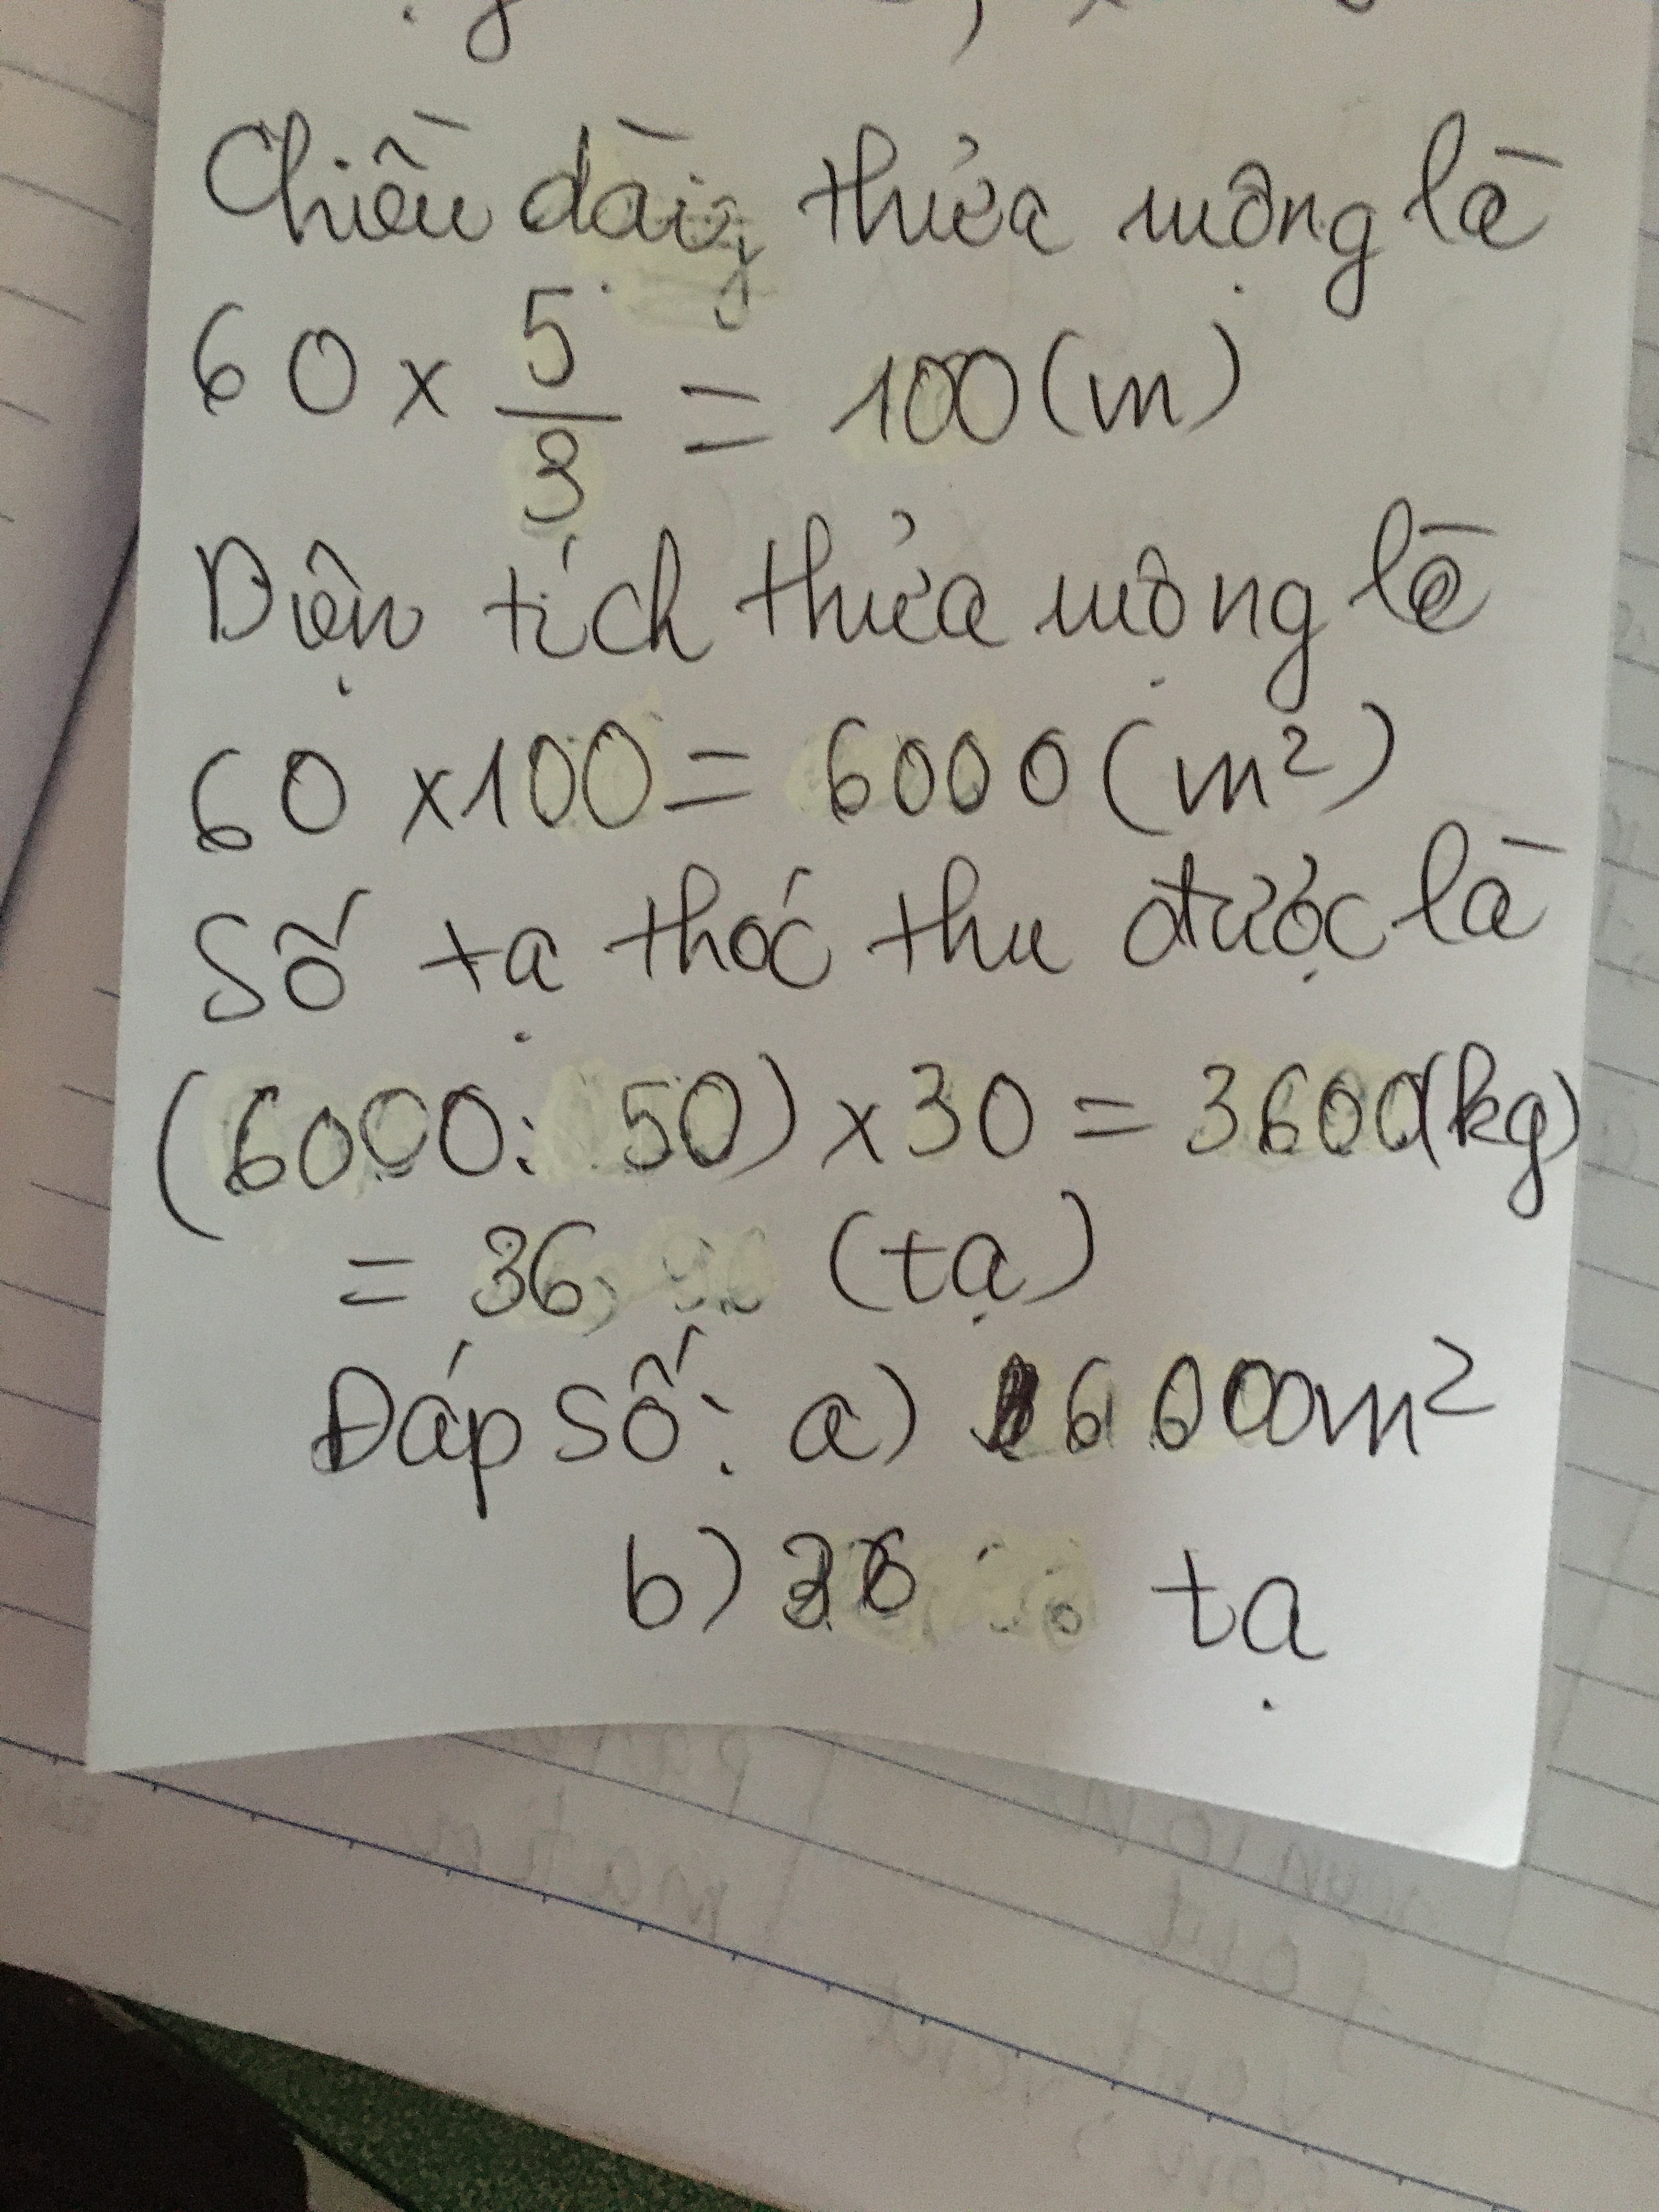 Chiều dài thửa ruộng là
60 x 5/3 = 100 (m)
Diện tích thửa ruộng là
60 x 100 = 6000 (m²)
Số tạ thóc thu được là
(6000 : 50) x 30 = 3600 (kg)
= 36 (tạ)
Đáp số: a) 6000m²
b) 36 tạ